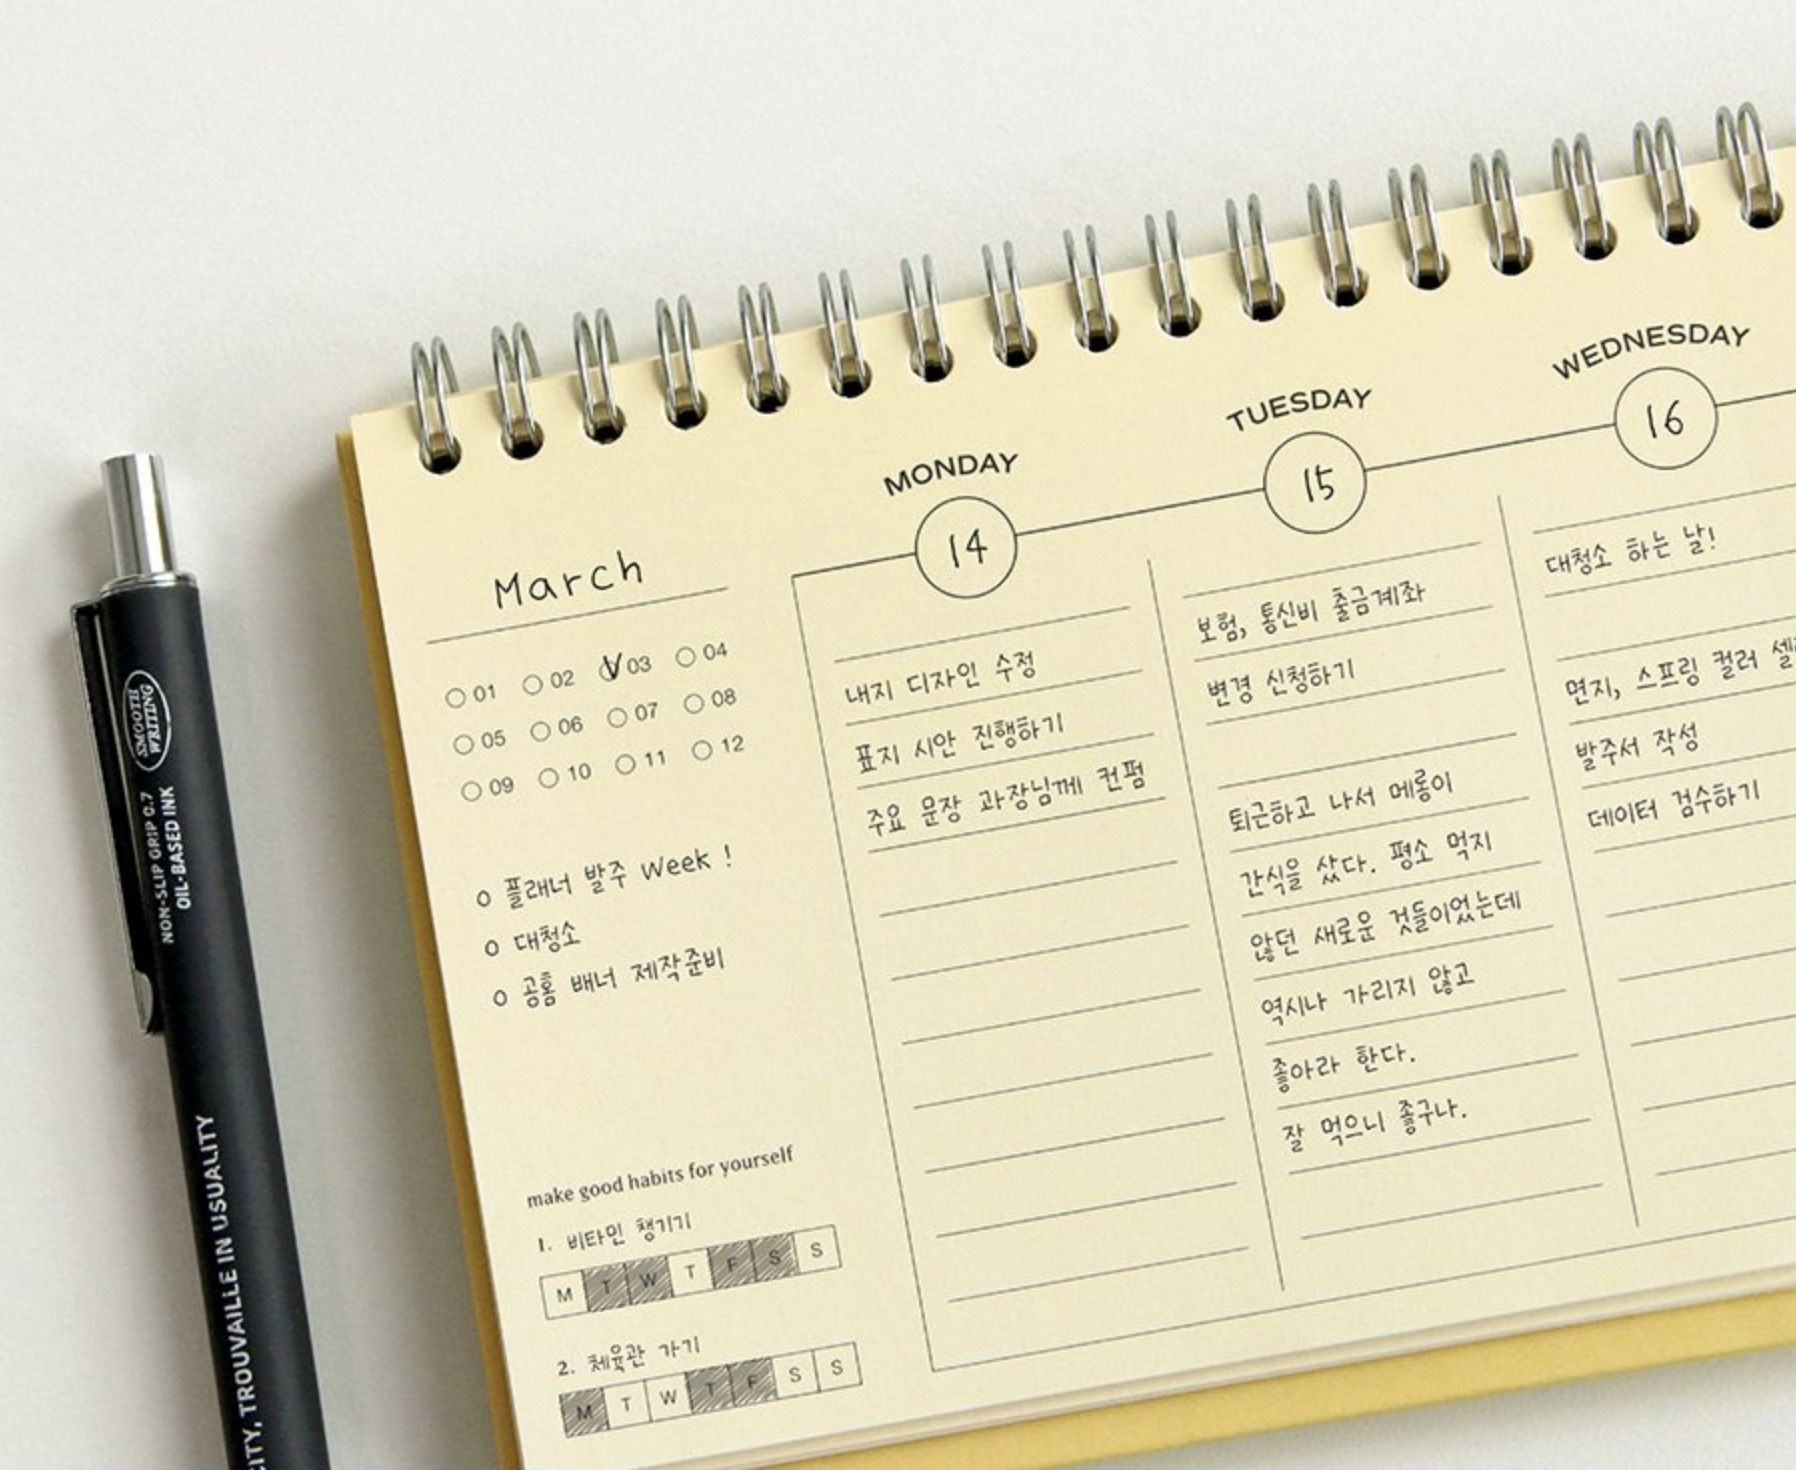 SMOOTH
WRITING
NON-SLIP GRIP 0.7
OIL-BASED INK
CITY, TROUVAILLE IN USUALITY
March
01 02 03 04
05 06 07 08
09 10 11 12
플래너 발주 Week !
대청소
공홈 배너 제작준비
make good habits for yourself
1. 비타민 챙기기
M T W T F S S
2. 체육관 가기
M T W T F S S
MONDAY
14
내지 디자인 수정
표지 시안 진행하기
주요 문장 과장님께 컨펌
TUESDAY
15
보험, 통신비 출금계좌
변경 신청하기
퇴근하고 나서 메롱이
간식을 샀다. 평소 먹지
않던 새로운 것들이었는데
역시나 가리지 않고
좋아라 한다.
잘 먹으니 좋구나.
WEDNESDAY
16
대청소 하는 날!
면지, 스프링 컬러
발주서 작성
데이터 검수하기